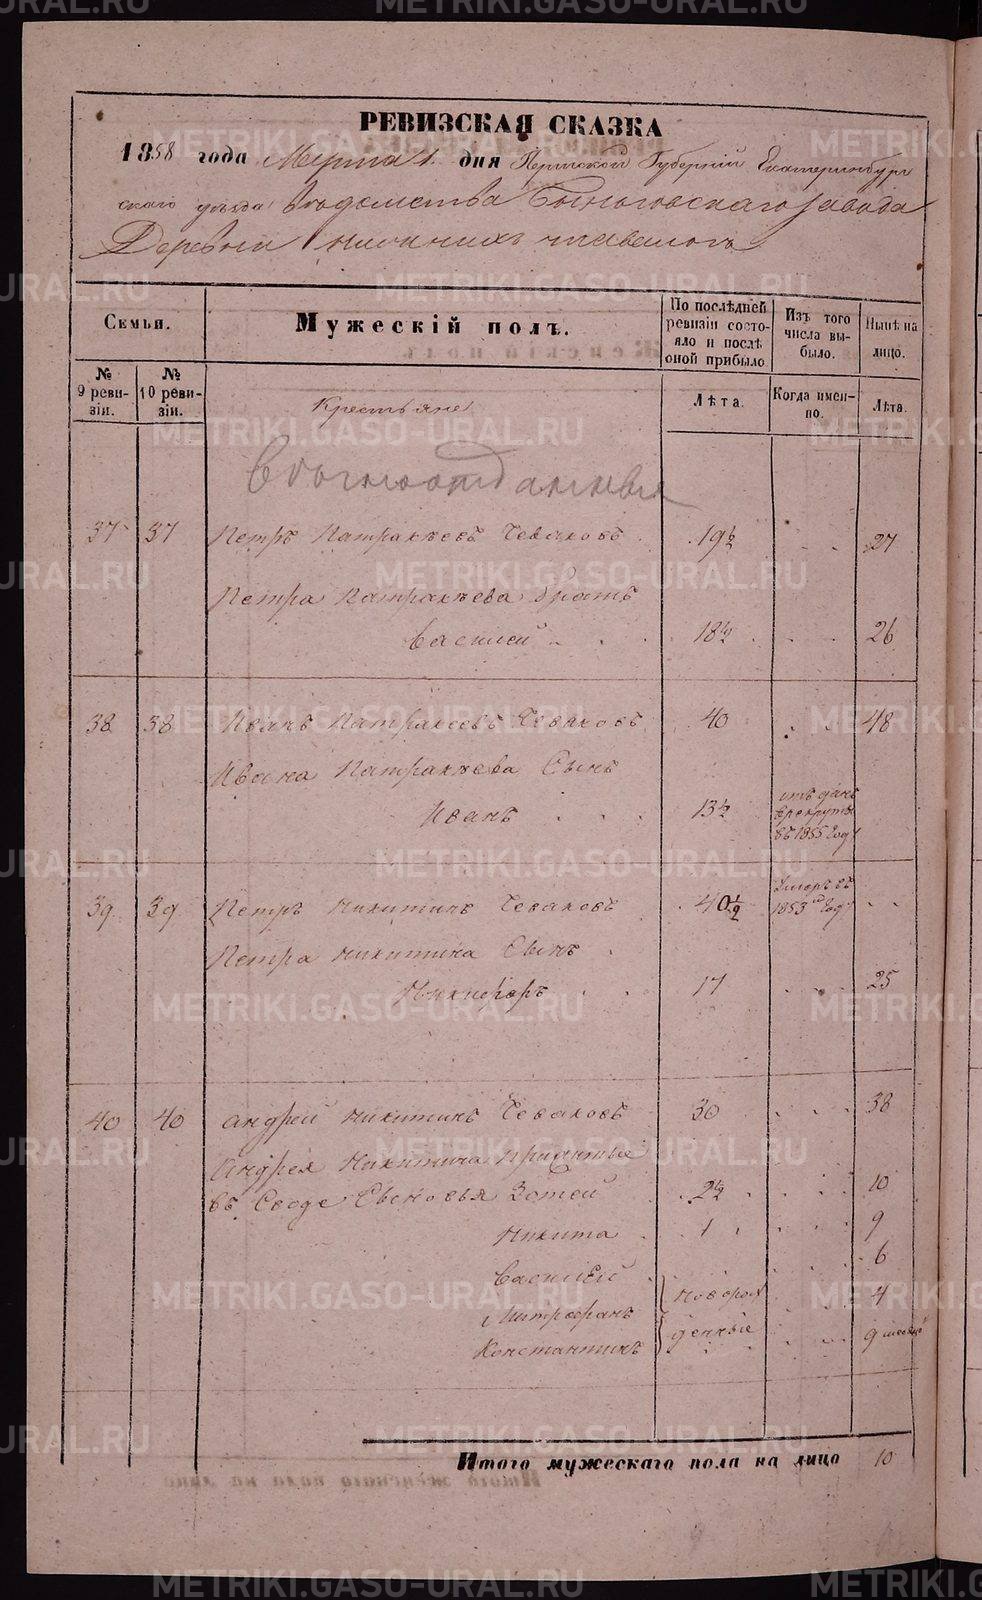 РЕВИЗСКАЯ СКАЗКА
1858 года Марта 1 дня Пермской Губернии Екатеринбург
скаго уезда Ведомства Быньговскаго завода
Деревни нижнихъ
Семьи.
Мужескій полъ.
По послѣдней ревизіи состояло и послѣ оной прибыло
Изъ того числа выбыло.
Нынѣ на лицо.
№ 9 ревизіи.
№ 10 ревизіи.
Лѣта.
Когда именно.
Лѣта.
Крестьяне
37 37 Петръ Патракѣевъ Чеваковъ 19½ 27
Петра Патракѣева братъ
Василей 18½ 26
38 38 Иванъ Патракеевъ Чеваковъ 40 48
Ивана Патракѣева Сынъ
Иванъ 13½ отъданъ
в рекруты
въ 1855 Году
39 39 Петръ Никитинъ Чеваковъ 40½ Умеръ въ
1853 Году
Петра Никитина Сынъ
Никифоръ 17 25
40 40 Андрей Никитинъ Чеваковъ 30 38
Андрея Никитина
въ Сыновья Зотей 2½ 10
Никита 1 9
Василей 6
Митрофанъ новорож 4
Константинъ денные 9 месяц
Итого мужескаго пола на лицо 10
METRIKI.GASO-URAL.RU